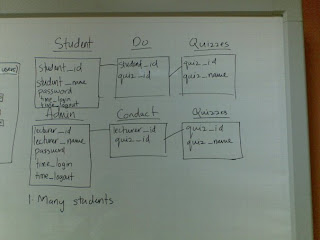 Student
Do
Quizzes
student_id
student_name
password
time_login
time_logout
student_id
quiz_id
quiz_id
quiz_name
Admin
Conduct
Quizzes
lecturer_id
lecturer_name
password
time_login
time_logout
lecturer_id
quiz_id
quiz_id
quiz_name
1. Many students